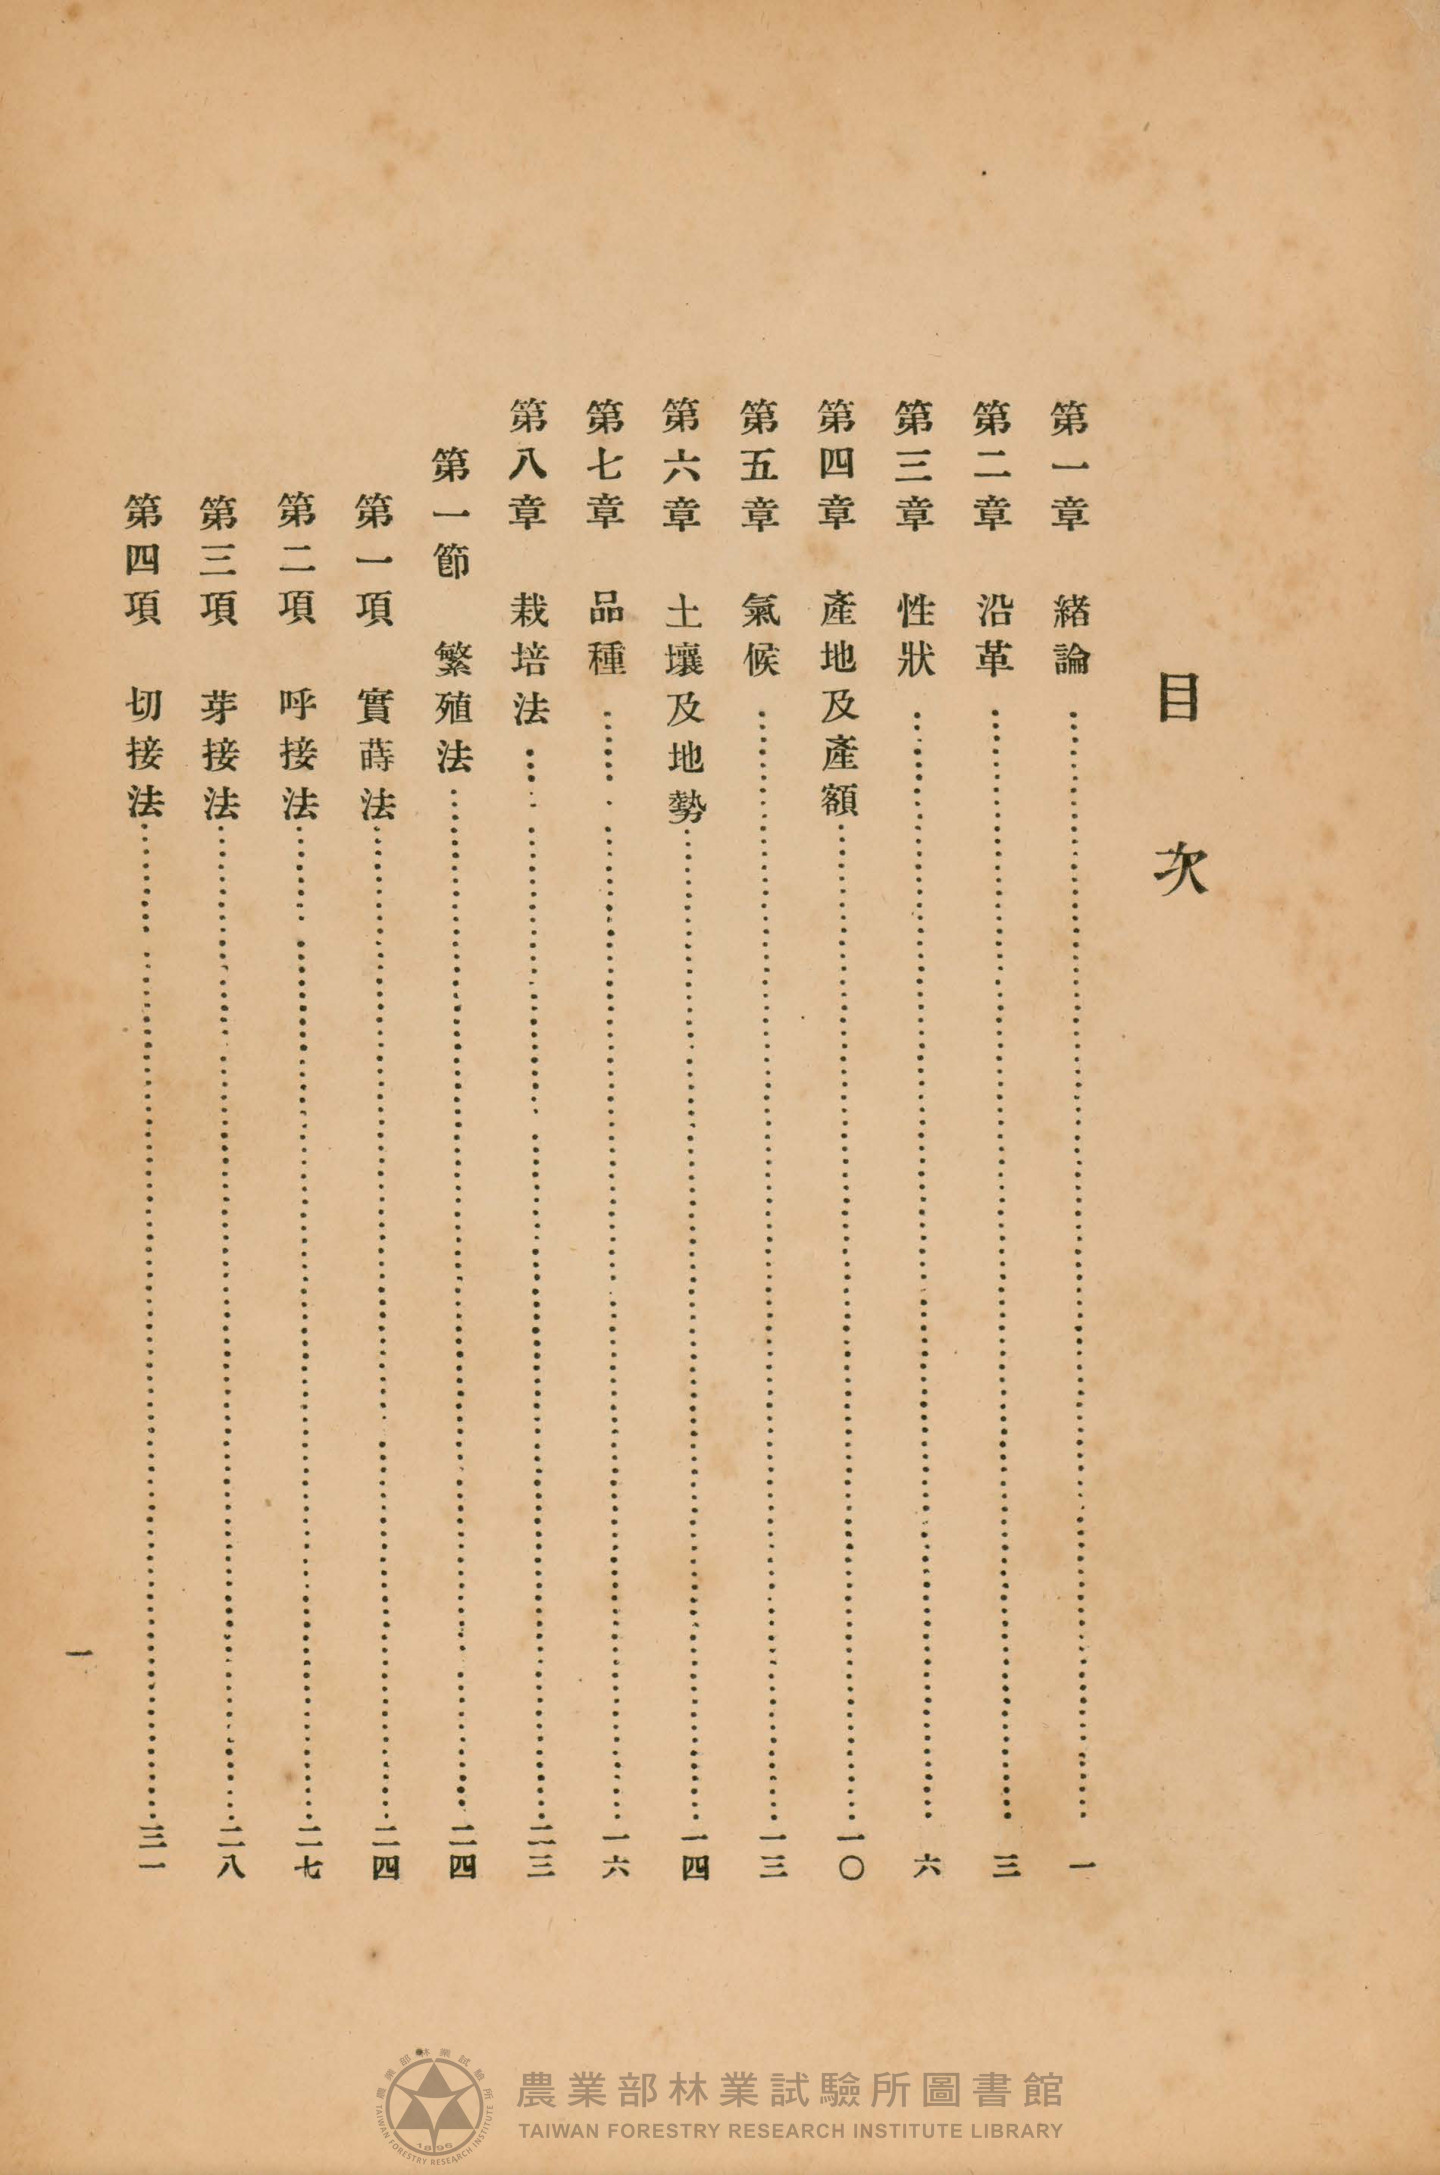 目次
第一章 緒論……………一
第二章 沿革……………三
第三章 性狀……………六
第四章 產地及產額……………一〇
第五章 氣候……………一三
第六章 土壤及地勢……………一四
第七章 品種……………一六
第八章 栽培法……………二三
第一節 繁殖法……………二四
第一項 實蒔法……………二四
第二項 呼接法……………二七
第三項 芽接法……………二八
第四項 切接法……………三一
一
農業部林業試驗所圖書館
TAIWAN FORESTRY RESEARCH INSTITUTE LIBRARY
農業部林業試驗所
1896
TAIWAN FORESTRY RESEARCH INSTITUTE